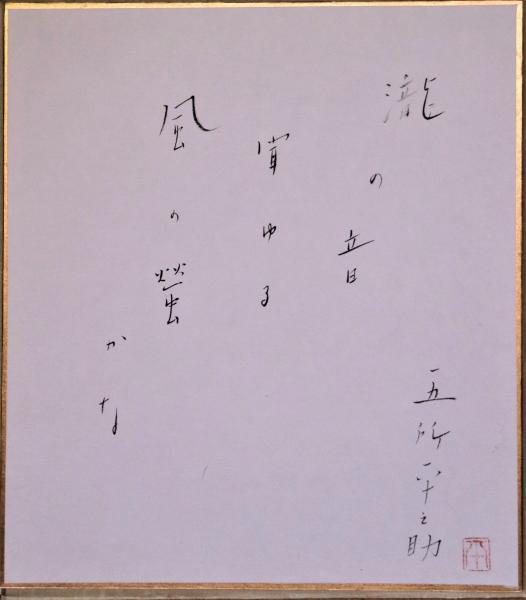 瀧の音
聞ゆる
風の螢
かな
五所平之助